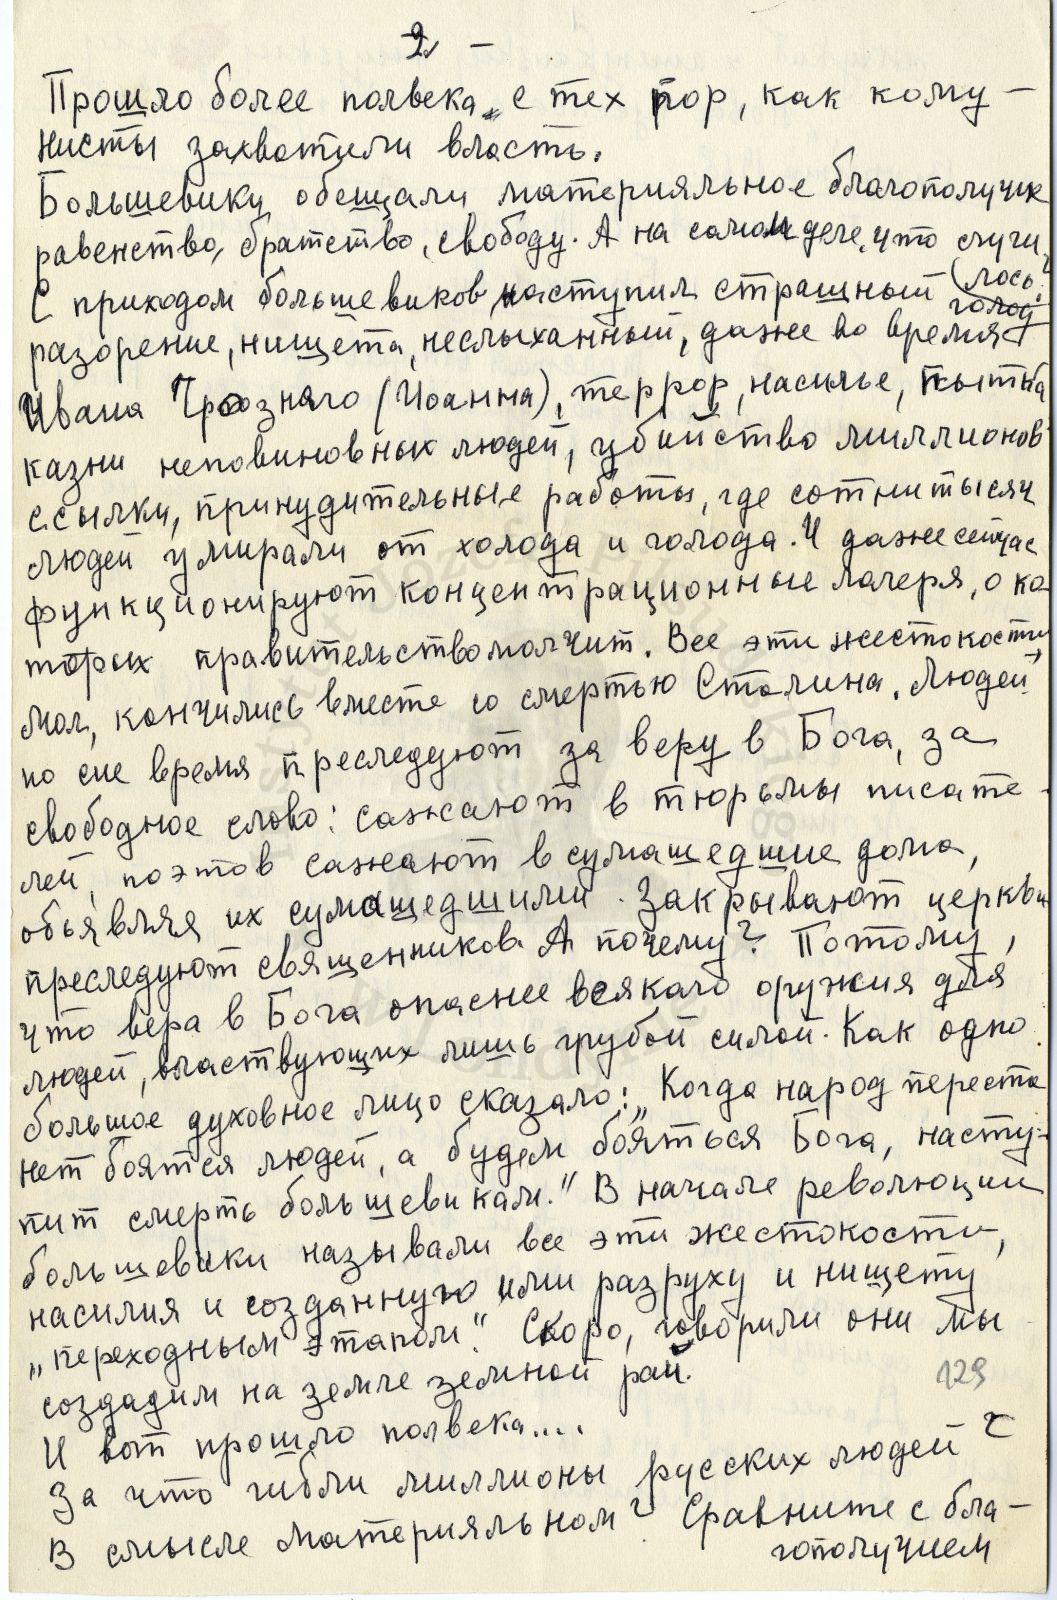 2 –
Прошло более полвека, с тех пор, как кому-
нисты захватили власть.
Большевики обещали материяльное благополучие
равенство, братство, свободу. А на самом деле, что случи
С приходом большевиков наступил страшный (лось?
голод
разорение, нищета, неслыханный, даже во время
Ивана Грозняго (Иоанна), террор, насилье, пытки
казни неповиновных людей, убийство миллионов
ссылки, принудительные работы, где сотни тысяч
людей умирали от холода и голода. И даже сейчас
функционируют концентрационные лагеря, о ко
торых правительство молчит. Все эти жестокости,
мол, кончились вместе со смертью Сталина. Людей
по сие время преследуют за веру в Бога, за
свободное слово: сажают в тюрьмы писате-
лей, поэтов сажают в сумашедшие дома,
обьявляя их сумашедшими. Закрывают церкви
преследуют священников. А почему? Потому,
что вера в Бога опаснее всякаго оружия для
людей, властвующих лишь грубой силой. Как одно
большое духовное лицо сказало: „Когда народ переста
нет боятся людей, а будем бояться Бога, насту-
пит смерть большевикам." В начале революции
большевики называли все эти жестокости,
насилия и созданную ими разруху и нищету
„переходным этапом". Скоро, говорили они мы
создадим на земле земной рай.
129
И вот прошло полвека....
За что гибли миллионы русских людей?
В смысле материяльном? Сравните с бла-
гополучием